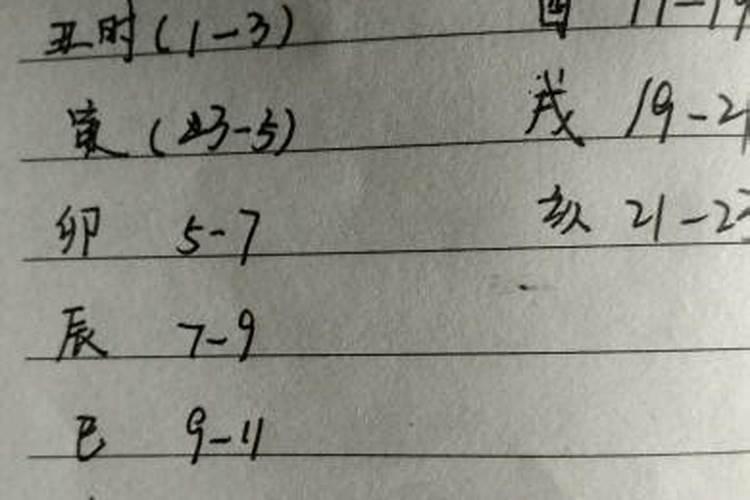 丑时(1-3)
寅(3-5)
卯 5-7
辰 7-9
巳 9-11
酉 17-19
戌 19-21
亥 21-23